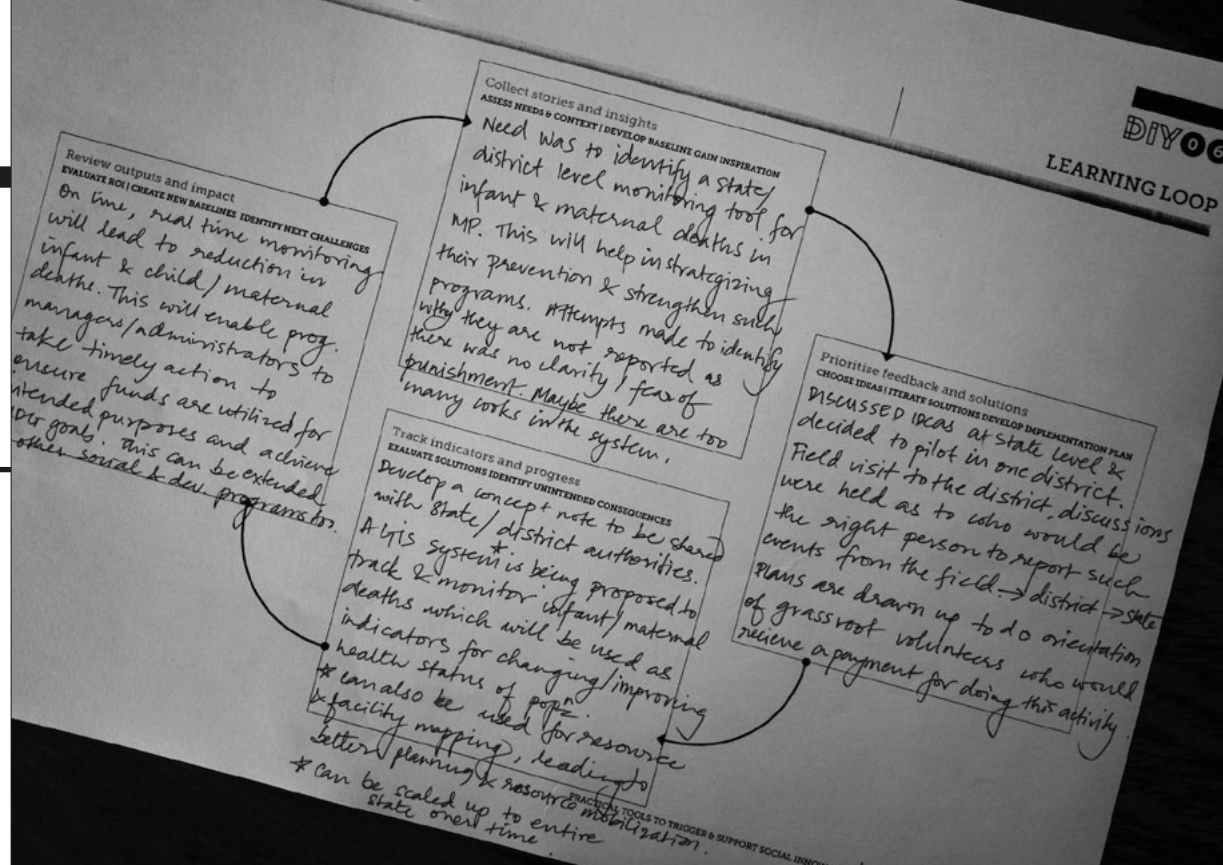 DIY06
LEARNING LOOP
Collect stories and insights
ASSESS NEEDS & CONTEXT | DEVELOP BASELINE GAIN INSPIRATION
Need was to identify a state/
district level monitoring tool for
infant & maternal deaths in
MP. This will help in strategizing
their prevention & strengthen such
programs. Attempts made to identify
why they are not reported as
there was no clarity / fear of
punishment. Maybe there are too
many cooks in the system.
Prioritise feedback and solutions
CHOOSE IDEAS | ITERATE SOLUTIONS DEVELOP IMPLEMENTATION PLAN
DISCUSSED IDEAS at State level &
decided to pilot in one district.
Field visit to the district, discussions
were held as to who would be
the right person to report such
events from the field → district → state
Plans are drawn up to do orientation
of grassroot volunteers who would
recieve a payment for doing this activity.
Track indicators and progress
EVALUATE SOLUTIONS IDENTIFY UNINTENDED CONSEQUENCES
Develop a concept note to be shared
with State/district authorities.
A GIS system* is being proposed to
track & monitor infant/maternal
deaths which will be used as
indicators for changing/improving
health status of popn.
* can also be used for resource
& facility mapping, leading to
better planning & resource mobilization.
* can be scaled up to entire
state over time.
Review outputs and impact
EVALUATE ROI | CREATE NEW BASELINES IDENTIFY NEXT CHALLENGES
On line, real time monitoring
will lead to reduction in
infant & child/maternal
deaths. This will enable prog.
managers/administrators to
take timely action to
ensure funds are utilized for
intended purposes and achieve
goals. This can be extended
other social & dev. programs too.
PRACTICAL TOOLS TO TRIGGER & SUPPORT SOCIAL